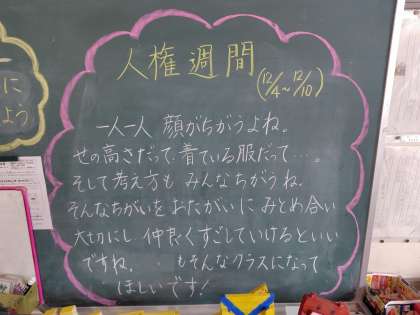 に
よう
人権週間
(12/4~12/10)
一人一人 顔がちがうよね。
せの高さだって、着ている服だって…。
そして考え方も みんなちがうね。
そんなちがいを おたがいに みとめ合い
大切にし 仲良くすごしていけるといい
ですね。 もそんなクラスになって
ほしいです!